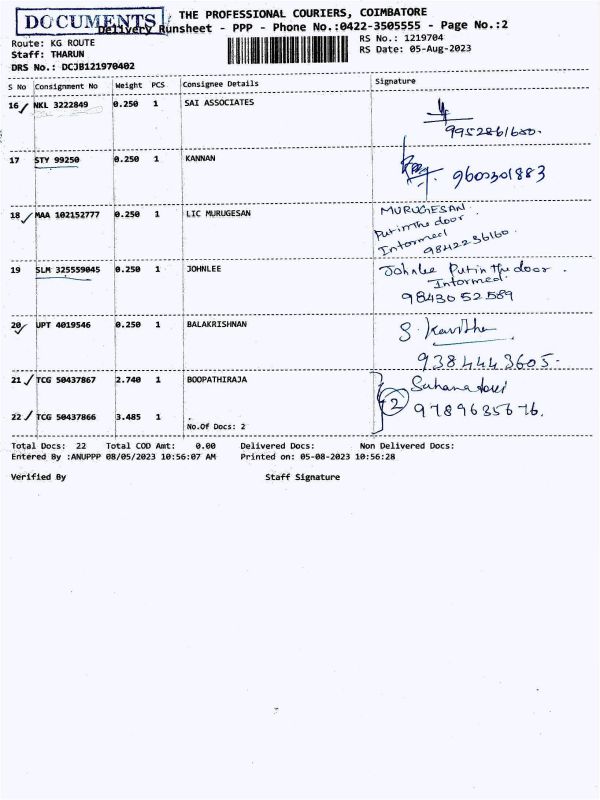 DOCUMENTS
THE PROFESSIONAL COURIERS, COIMBATORE
Delivery Runsheet - PPP - Phone No.:0422-3505555 - Page No.:2
Route: KG ROUTE
RS No.: 1219704
Staff: THARUN
RS Date: 05-Aug-2023
DRS No.: DCJB121970402
S No Consignment No Weight PCS Consignee Details Signature
16 NKL 3222849 0.250 1 SAI ASSOCIATES
9952861680.
17 STY 99250 0.250 1 KANNAN
9600301883
18 MAA 102152777 0.250 1 LIC MURUGESAN MURUGESAN.
Put in the door
Informed
9842236160.
19 SLM 325559045 0.250 1 JOHNLEE Johnlee Put in the door.
Informed.
9843052589
20 UPT 4019546 0.250 1 BALAKRISHNAN S. Kavitha
9384443605.
21 TCG 50437867 2.740 1 BOOPATHIRAJA
2 9789635676.
22 TCG 50437866 3.485 1 .
No.Of Docs: 2
Total Docs: 22 Total COD Amt: 0.00 Delivered Docs: Non Delivered Docs:
Entered By :ANUPPP 08/05/2023 10:56:07 AM Printed on: 05-08-2023 10:56:28
Verified By Staff Signature